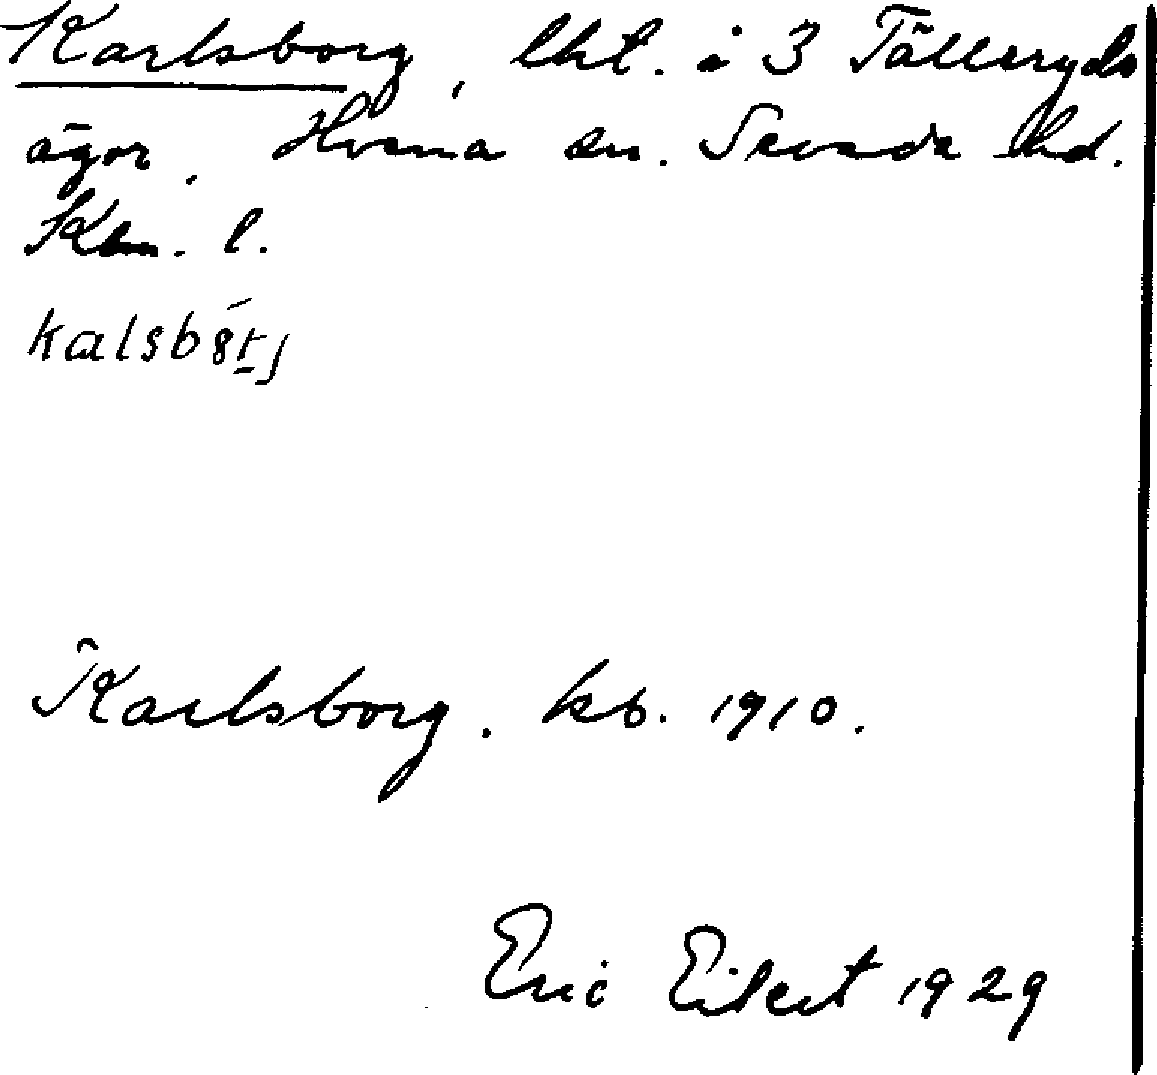 Karlsborg, lht. i 3 Tälleryds
ägor. Hvena sn. Sevede hd.
Klm. l.
Karlsborg. kb. 1910.
Eric Eilert 1929